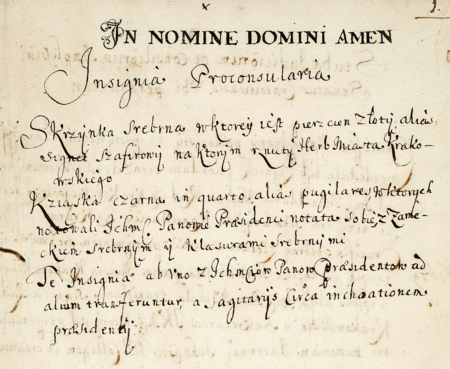 1.
IN NOMINE DOMINI AMEN
Insignia Proconsularia
Skrzynka Srebrna w ktorey iest pierzcien złoty alias
signet szafirowy na ktorym rznięty Herb Miasta Krako-
wskiego
Xiąszka czarna in quarto alias pugilares w ktorych
notowali Ichmć Panowie Præsidenci notata sobie z zame-
czkiem srebrnym y klawzurami srebrnymi
Te Insignia ab vno z Ichmciow Panow Præsidentow ad
alium transferuntur a Sagittarijs circa inchoationem
præsidentij